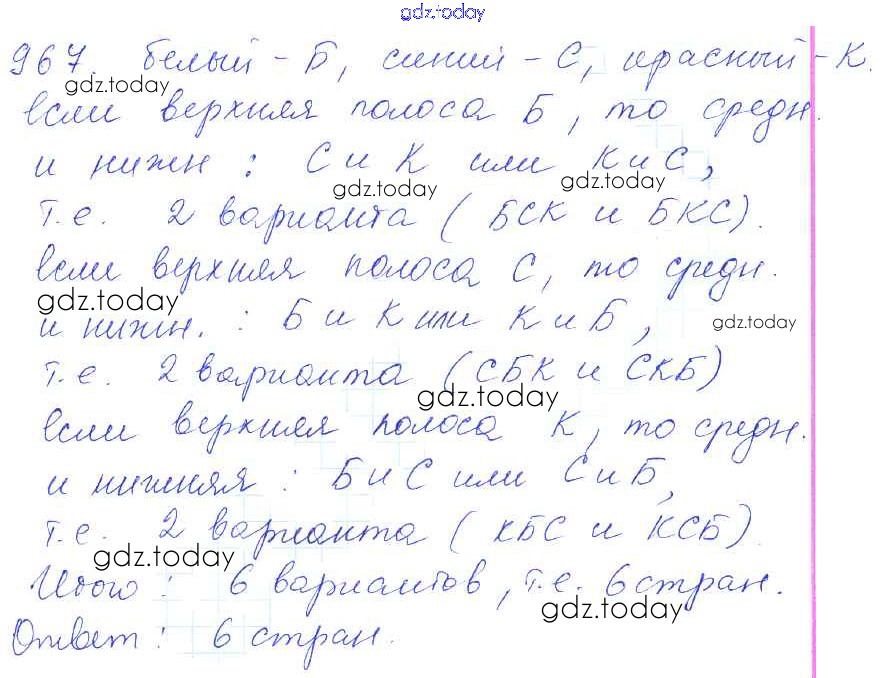 gdz.today
967. белый - Б, синий - С, красный - К.
gdz.today
если верхняя полоса Б, то средн.
и нижн : С и К или К и С,
gdz.today gdz.today
т.е. 2 варианта ( БСК и БКС).
если верхняя полоса С, то средн.
gdz.today
и нижн. : Б и К или К и Б,
gdz.today
т.е. 2 варианта (СБК и СКБ)
gdz.today
если верхняя полоса К, то средн.
и нижняя : Б и С или С и Б,
т.е. 2 варианта ( КБС и КСБ).
gdz.today
Итого : 6 вариантов, т.е. 6 стран.
gdz.today
Ответ : 6 стран.